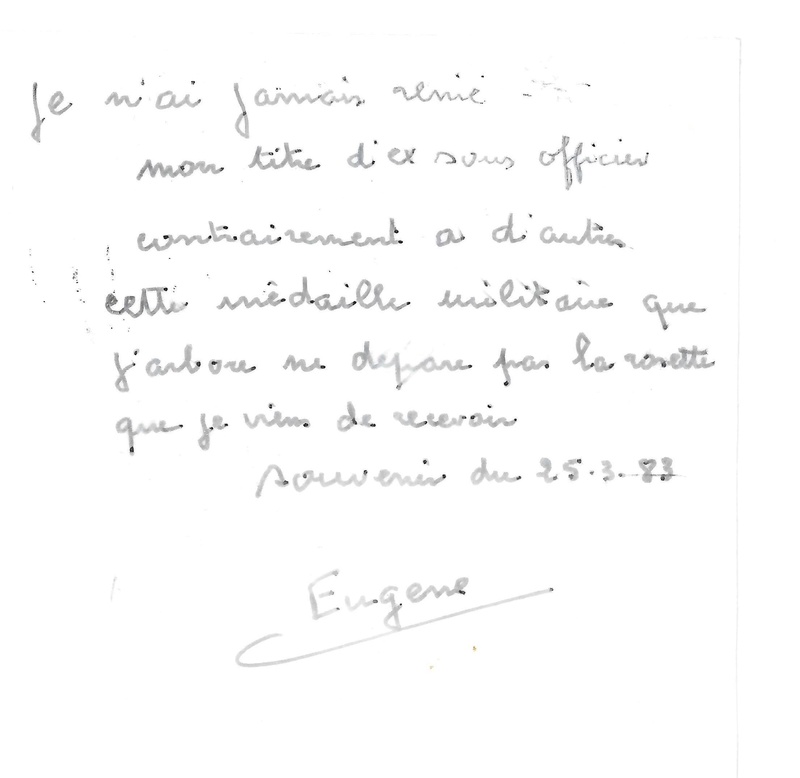 Je n'ai jamais renié
mon titre d'ex sous officier
contrairement a d'autres
cette médaille militaire que
j'arbore ne depare pas la rosette
que je viens de recevoir
souvenir du 25.3.83
Eugene